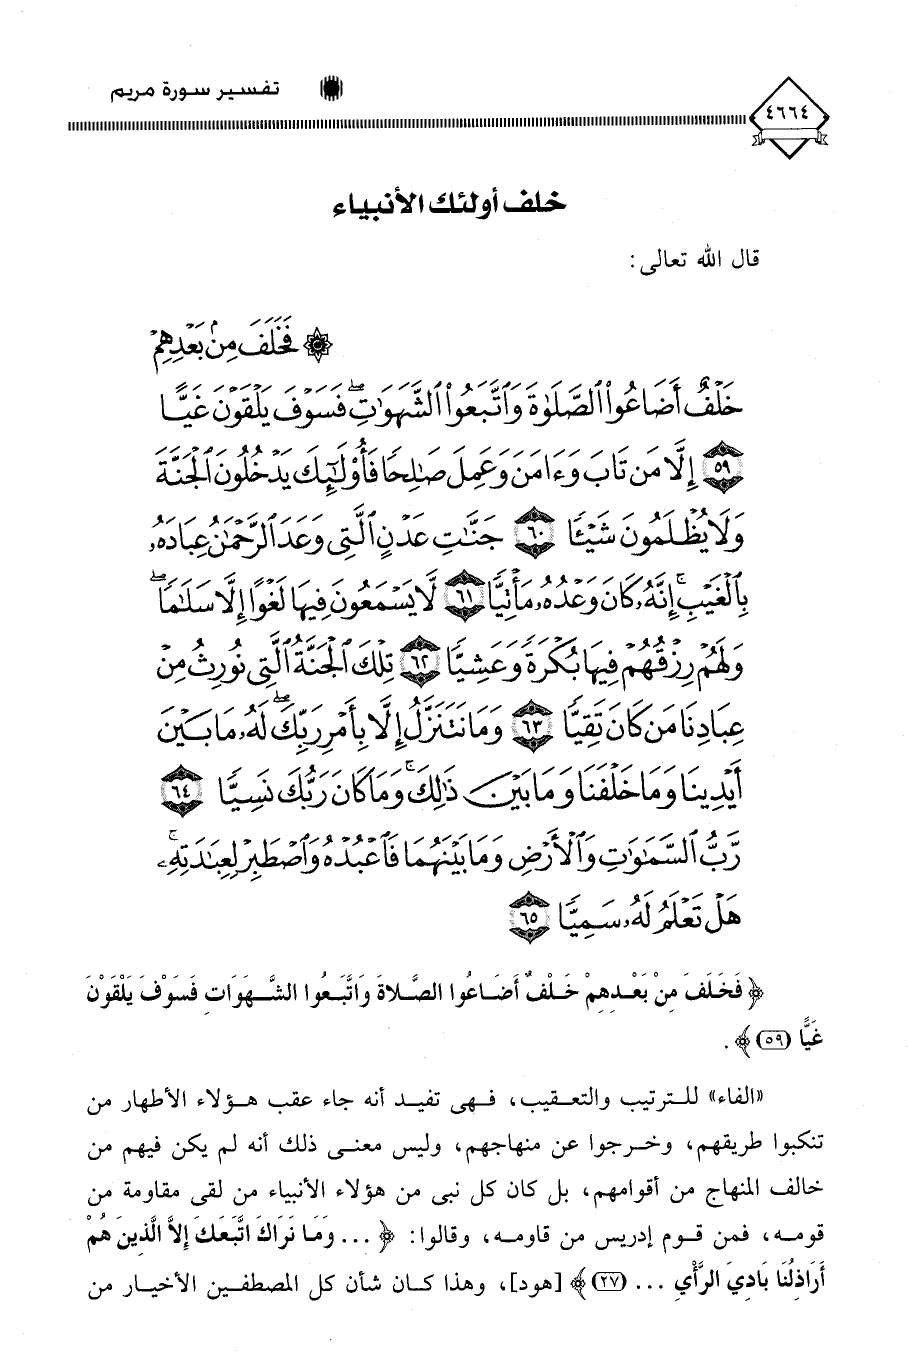 تفسير سورة مريم
٤٦٦٤
خلف أولئك الأنبياء
قال الله تعالى:
۞ فَخَلَفَ مِنۢ بَعْدِهِمْ
خَلْفٌ أَضَاعُوا۟ ٱلصَّلَوٰةَ وَٱتَّبَعُوا۟ ٱلشَّهَوَٰتِ ۖ فَسَوْفَ يَلْقَوْنَ غَيًّا
٥٩ إِلَّا مَن تَابَ وَءَامَنَ وَعَمِلَ صَٰلِحًا فَأُو۟لَٰٓئِكَ يَدْخُلُونَ ٱلْجَنَّةَ
وَلَا يُظْلَمُونَ شَيْـًٔا ٦٠ جَنَّٰتِ عَدْنٍ ٱلَّتِى وَعَدَ ٱلرَّحْمَٰنُ عِبَادَهُۥ
بِٱلْغَيْبِ ۚ إِنَّهُۥ كَانَ وَعْدُهُۥ مَأْتِيًّا ٦١ لَّا يَسْمَعُونَ فِيهَا لَغْوًا إِلَّا سَلَٰمًا ۖ
وَلَهُمْ رِزْقُهُمْ فِيهَا بُكْرَةً وَعَشِيًّا ٦٢ تِلْكَ ٱلْجَنَّةُ ٱلَّتِى نُورِثُ مِنْ
عِبَادِنَا مَن كَانَ تَقِيًّا ٦٣ وَمَا نَتَنَزَّلُ إِلَّا بِأَمْرِ رَبِّكَ ۖ لَهُۥ مَا بَيْنَ
أَيْدِينَا وَمَا خَلْفَنَا وَمَا بَيْنَ ذَٰلِكَ ۚ وَمَا كَانَ رَبُّكَ نَسِيًّا ٦٤
رَّبُّ ٱلسَّمَٰوَٰتِ وَٱلْأَرْضِ وَمَا بَيْنَهُمَا فَٱعْبُدْهُ وَٱصْطَبِرْ لِعِبَٰدَتِهِۦ ۚ
هَلْ تَعْلَمُ لَهُۥ سَمِيًّا ٦٥
﴿ فَخَلَفَ مِنْ بَعْدِهِمْ خَلْفٌ أَضَاعُوا الصَّلَاةَ وَاتَّبَعُوا الشَّهَوَاتِ فَسَوْفَ يَلْقَوْنَ
غَيًّا (٥٩) ﴾ .
«الفاء» للترتيب والتعقيب، فهى تفيد أنه جاء عقب هؤلاء الأطهار من
تنكبوا طريقهم، وخرجوا عن منهاجهم، وليس معنى ذلك أنه لم يكن فيهم من
خالف المنهاج من أقوامهم، بل كان كل نبى من هؤلاء الأنبياء من لقى مقاومة من
قومه، فمن قوم إدريس من قاومه، وقالوا: ﴿ ... وَمَا نَرَاكَ اتَّبَعَكَ إِلاَّ الَّذِينَ هُمْ
أَرَاذِلُنَا بَادِيَ الرَّأْيِ ... (٢٧) ﴾ [هود]، وهذا كان شأن كل المصطفين الأخيار من